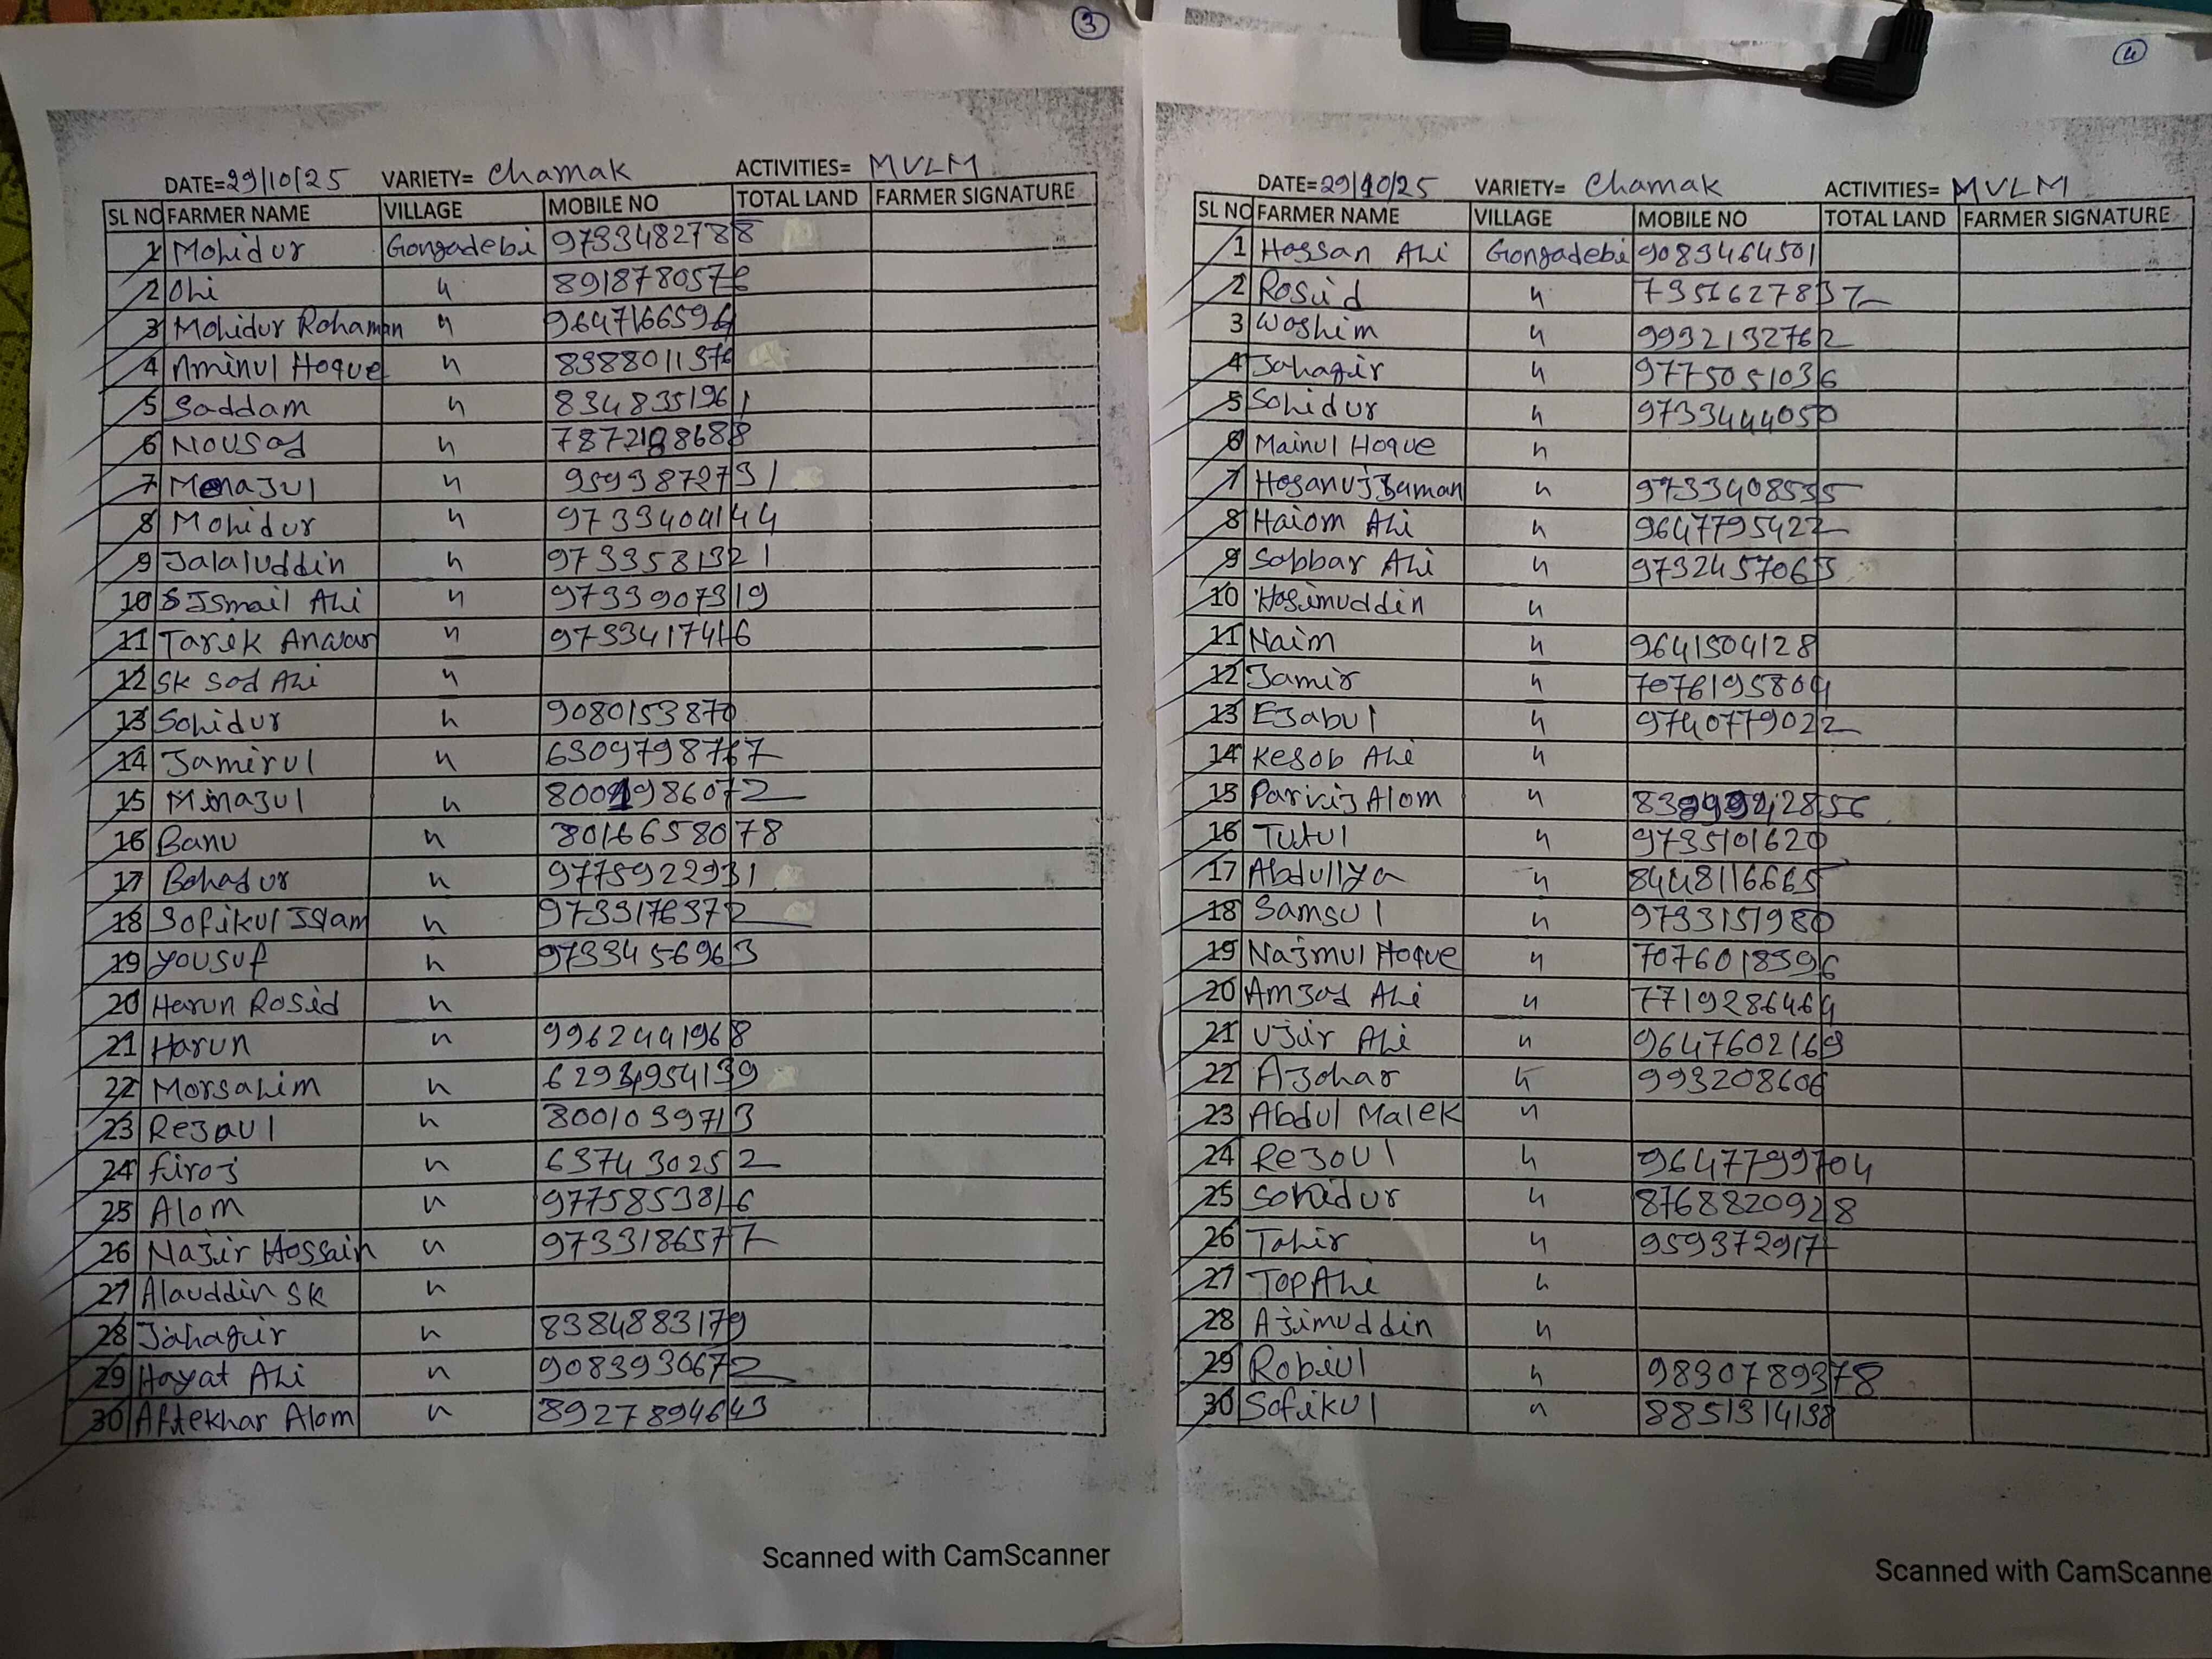 3
DATE=29/10/25 VARIETY= Chamak ACTIVITIES= MVLM
SL NO FARMER NAME VILLAGE MOBILE NO TOTAL LAND FARMER SIGNATURE
1 Mohidur Gongadebi 9733482788
2 Ohi " 8918780576
3 Mohidur Rohaman " 9647166596
4 Aminul Hoque " 8388011376
5 Saddam " 8348351961
6 Nousad "
7 Menajul " 9593872731
8 Mohidur " 9733404144
9 Jalaluddin " 9733581321
10 Ismail Ali " 9733907319
11 Tarek Anwar " 9733417416
12 SK Sod Ali "
13 Sohidur " 9080153870
14 Jamirul " 6309798767
15 Minazul "
16 Banu " 8016658078
17 Bahadur " 9775922931
18 Sofikul Islam " 9733176372
19 Yousuf " 9733456963
20 Harun Rosid "
21 Harun " 9962441968
22 Morsalim "
23 Rejaul " 8001039713
24 firoj " 6374330252
25 Alom " 9775853816
26 Najir Hossain " 9733186577
27 Alauddin SK "
28 Jahagir " 8384883179
29 Hayat Ali " 9083930672
30 Aftekhar Alom " 8927894643
Scanned with CamScanner
4
DATE=29/10/25 VARIETY= Chamak ACTIVITIES= MVLM
SL NO FARMER NAME VILLAGE MOBILE NO TOTAL LAND FARMER SIGNATURE
1 Hossan Ali Gongadebi 9083464501
2 Rosid " 7351627837
3 Woshim " 9932132762
4 Jahagir " 9775051036
5 Sohidur " 9733444050
6 Mainul Hoque "
7 Hosanujjaman " 9733408535
8 Haiom Ali " 9647795422
9 Sobbar Ali " 9732457063
10 Hosimuddin "
11 Naim " 9641504128
12 Jamir " 7076195804
13 Ejabul " 9740779022
14 Kesob Ali "
15 Parvij Alom "
16 Tutul " 9735101620
17 Abdullya " 8448116665
18 Samsul " 9733151980
19 Najmul Hoque " 7076018396
20 Amjad Ali " 7719286464
21 Ujir Ali " 9647602169
22 Ajohar " 993208606
23 Abdul Malek "
24 Rejoul " 9647799704
25 Sohidur " 8768820928
26 Tahir " 959372917
27 Top Ali "
28 Ajimuddin "
29 Robiul " 9830789378
30 Sofikul " 8851314138
Scanned with CamScanne